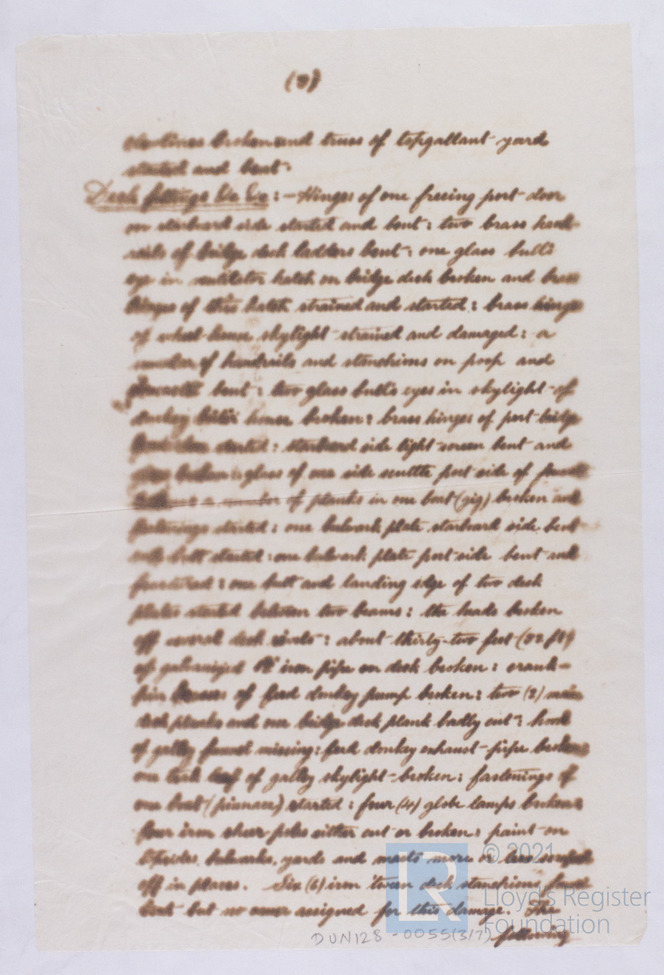 (3)
broken and truss of topgallant yard
started and bent.
Deck fittings &c &c :- Hinges of one freeing port door
on starboard side started and bent : two brass hand
rails of bridge deck ladders bent : one glass bull's
eye in ventilator hatch on bridge deck broken and brass
hinges of this hatch strained and started : brass hinge
of wheel-house skylight strained and damaged : a
number of handrails and stanchions on poop and
bent : two glass bull's eyes in skylight of
donkey boiler house broken : brass hinges of port bridge
started : starboard side light screen bent and
broken : glass of one side scuttle port side of
a number of planks in one boat (gig) broken and
fastenings started : one bulwark plate starboard side bent
and butt started : one bulwark plate port side bent and
fractured : one butt and landing edge of two deck
plates started between two beams : the heads broken
off several deck rivets : about thirty-two feet (32 ft)
of galvanized iron pipe on deck broken : crank-
pin brasses of feed donkey pump broken : two (2) main
deck planks and one bridge deck plank badly cut : hook
of galley funnel missing : feed donkey exhaust-pipe broken
one teak leaf of galley skylight broken : fastenings of
one boat (pinnace) started : four (4) globe lamps broken :
four iron sheer poles either cut or broken : paint on
topsides, bulwarks, yards and masts more or less scraped
off in places. Six (6) iron 'tween deck stanchions found
bent but no owner assigned for this damage. The
following
DUN128-0055(3/7)
© 2021
LR
Lloyd's Register
Foundation